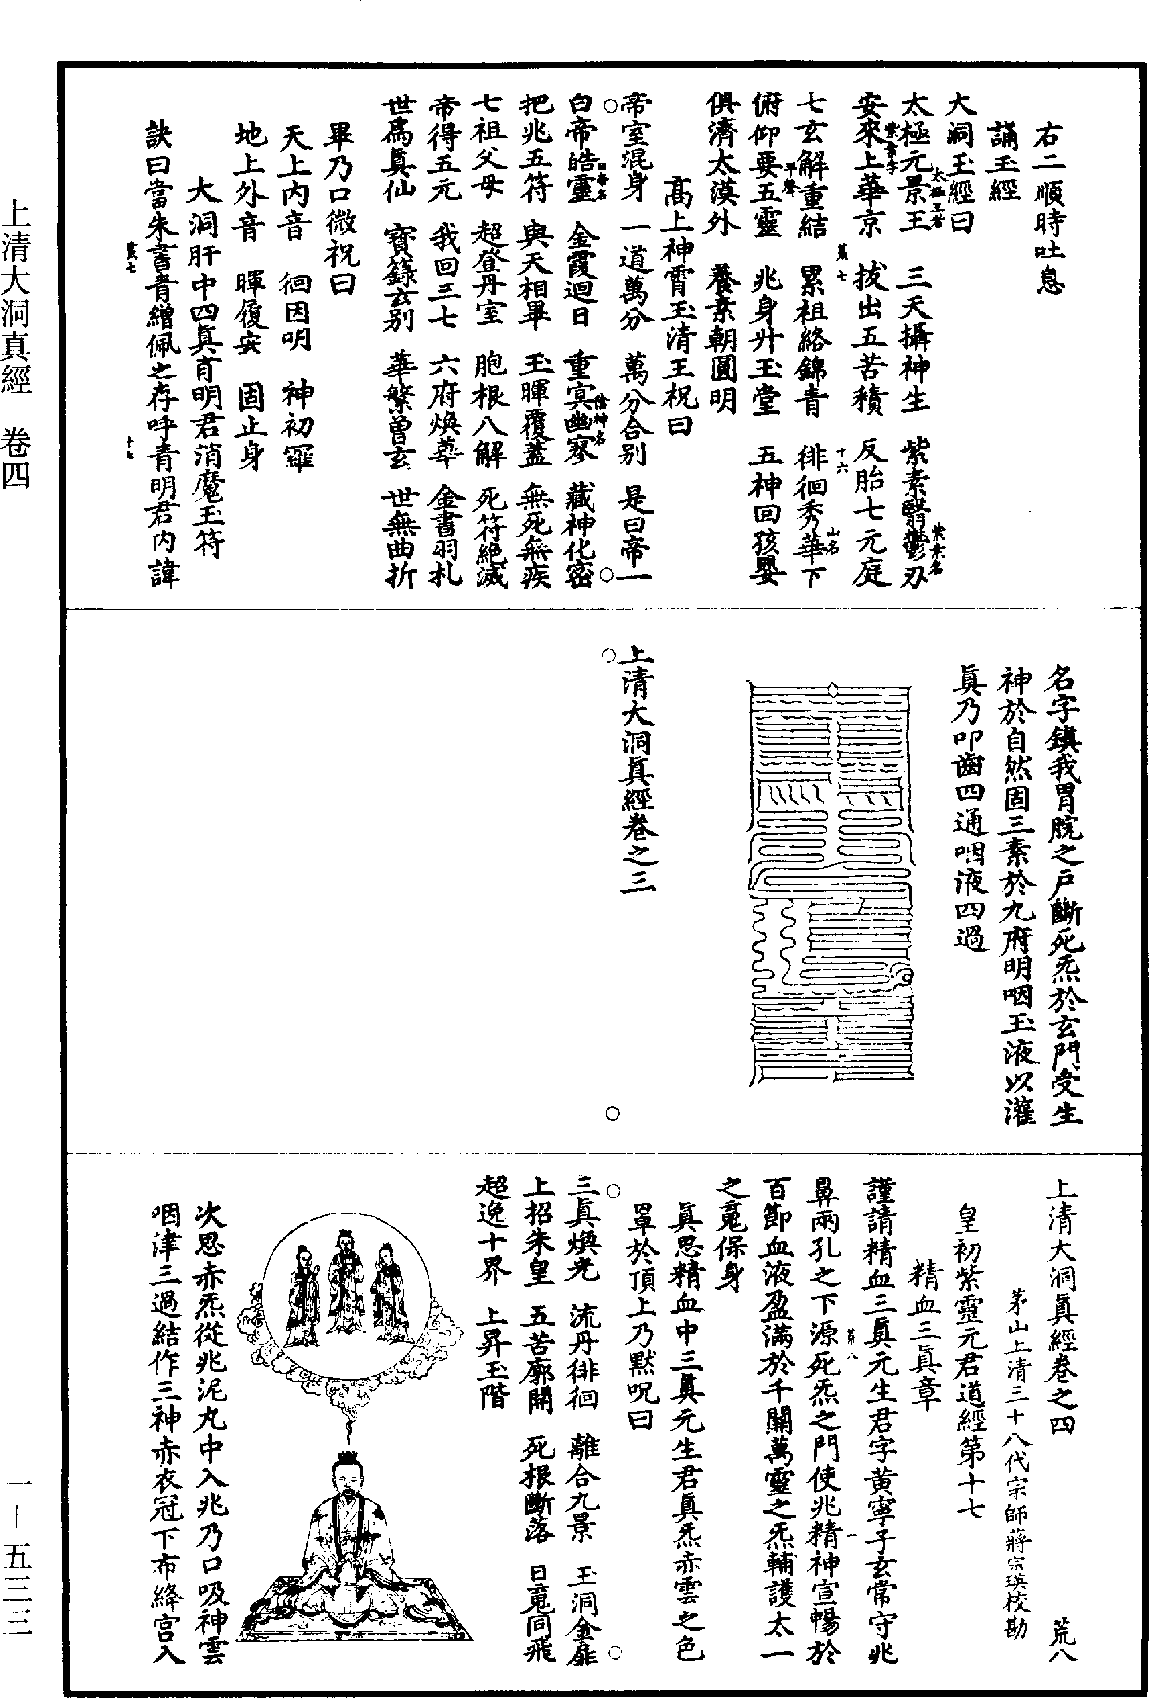 右二順時吐息
誦玉經
大洞玉經曰
太極元景王　三天攝神生　紫素翳鬱刃
安來上華京　拔出五苦積　反胎七元庭
七玄解重結　累祖絡錦青　徘徊秀華下
俯仰要五靈　兆身升玉堂　五神回孩嬰
俱濟太漠外　養素朝圓明
高上神霄玉清王祝曰
帝室混身　一道萬分　萬分合别　是曰帝一
白帝皓靈　金霞迴日　重冥幽寥　藏神化密
把兆五符　與天相畢　玉暉覆蓋　無死無疾
七祖父母　超登丹室　胞根八解　死符絕滅
帝得五元　我回三七　六府煥華　金書羽札
世爲眞仙　寶籙玄别　華繁曾玄　世無曲折
畢乃口微祝曰
天上内音　徊因明　神初羅
地上外音　暉復安　固止身
大洞肝中四眞育明君消魔玉符
訣曰當朱書青繒佩之存呼青明君内諱
名字鎮我胃脘之戶斷死炁於玄門受生
神於自然固三素於九府明咽玉液以灌
眞乃叩齒四通咽液四過
上清大洞眞經卷之三
上清大洞眞經卷之四　荒八
茅山上清三十八代宗師蔣宗瑛校勘
皇初紫靈元君道經第十七
精血三眞章
謹請精血三眞元生君字黄寧子玄常守兆
鼻兩孔之下源死炁之門使兆精神宣暢於
百節血液盈滿於千關萬靈之炁輔護太一
之㝠保身
眞思精血中三眞元生君眞炁赤雲之色
罩於頂上乃默呪曰
三眞煥光　流丹徘徊　離合九景　玉洞金扉
上招朱皇　五苦廓開　死根斷落　日㝠同飛
超逸十界　上昇玉階
次思赤炁從兆泥丸中入兆乃口吸神雲
咽津三過結作三神赤衣冠下布絳宫入
上清大洞真經　卷四
一—五三三